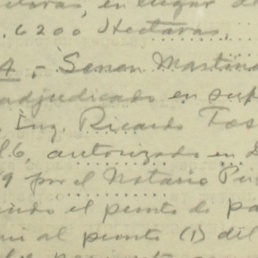 en lugar de
.6200 Hectaras.
4.- Senan Martin
adjudicado en sup
, Ing. Ricardo Tos
6, autorizado en
9 por el Notario Pu
endo el punto de pa
al punto (1) del